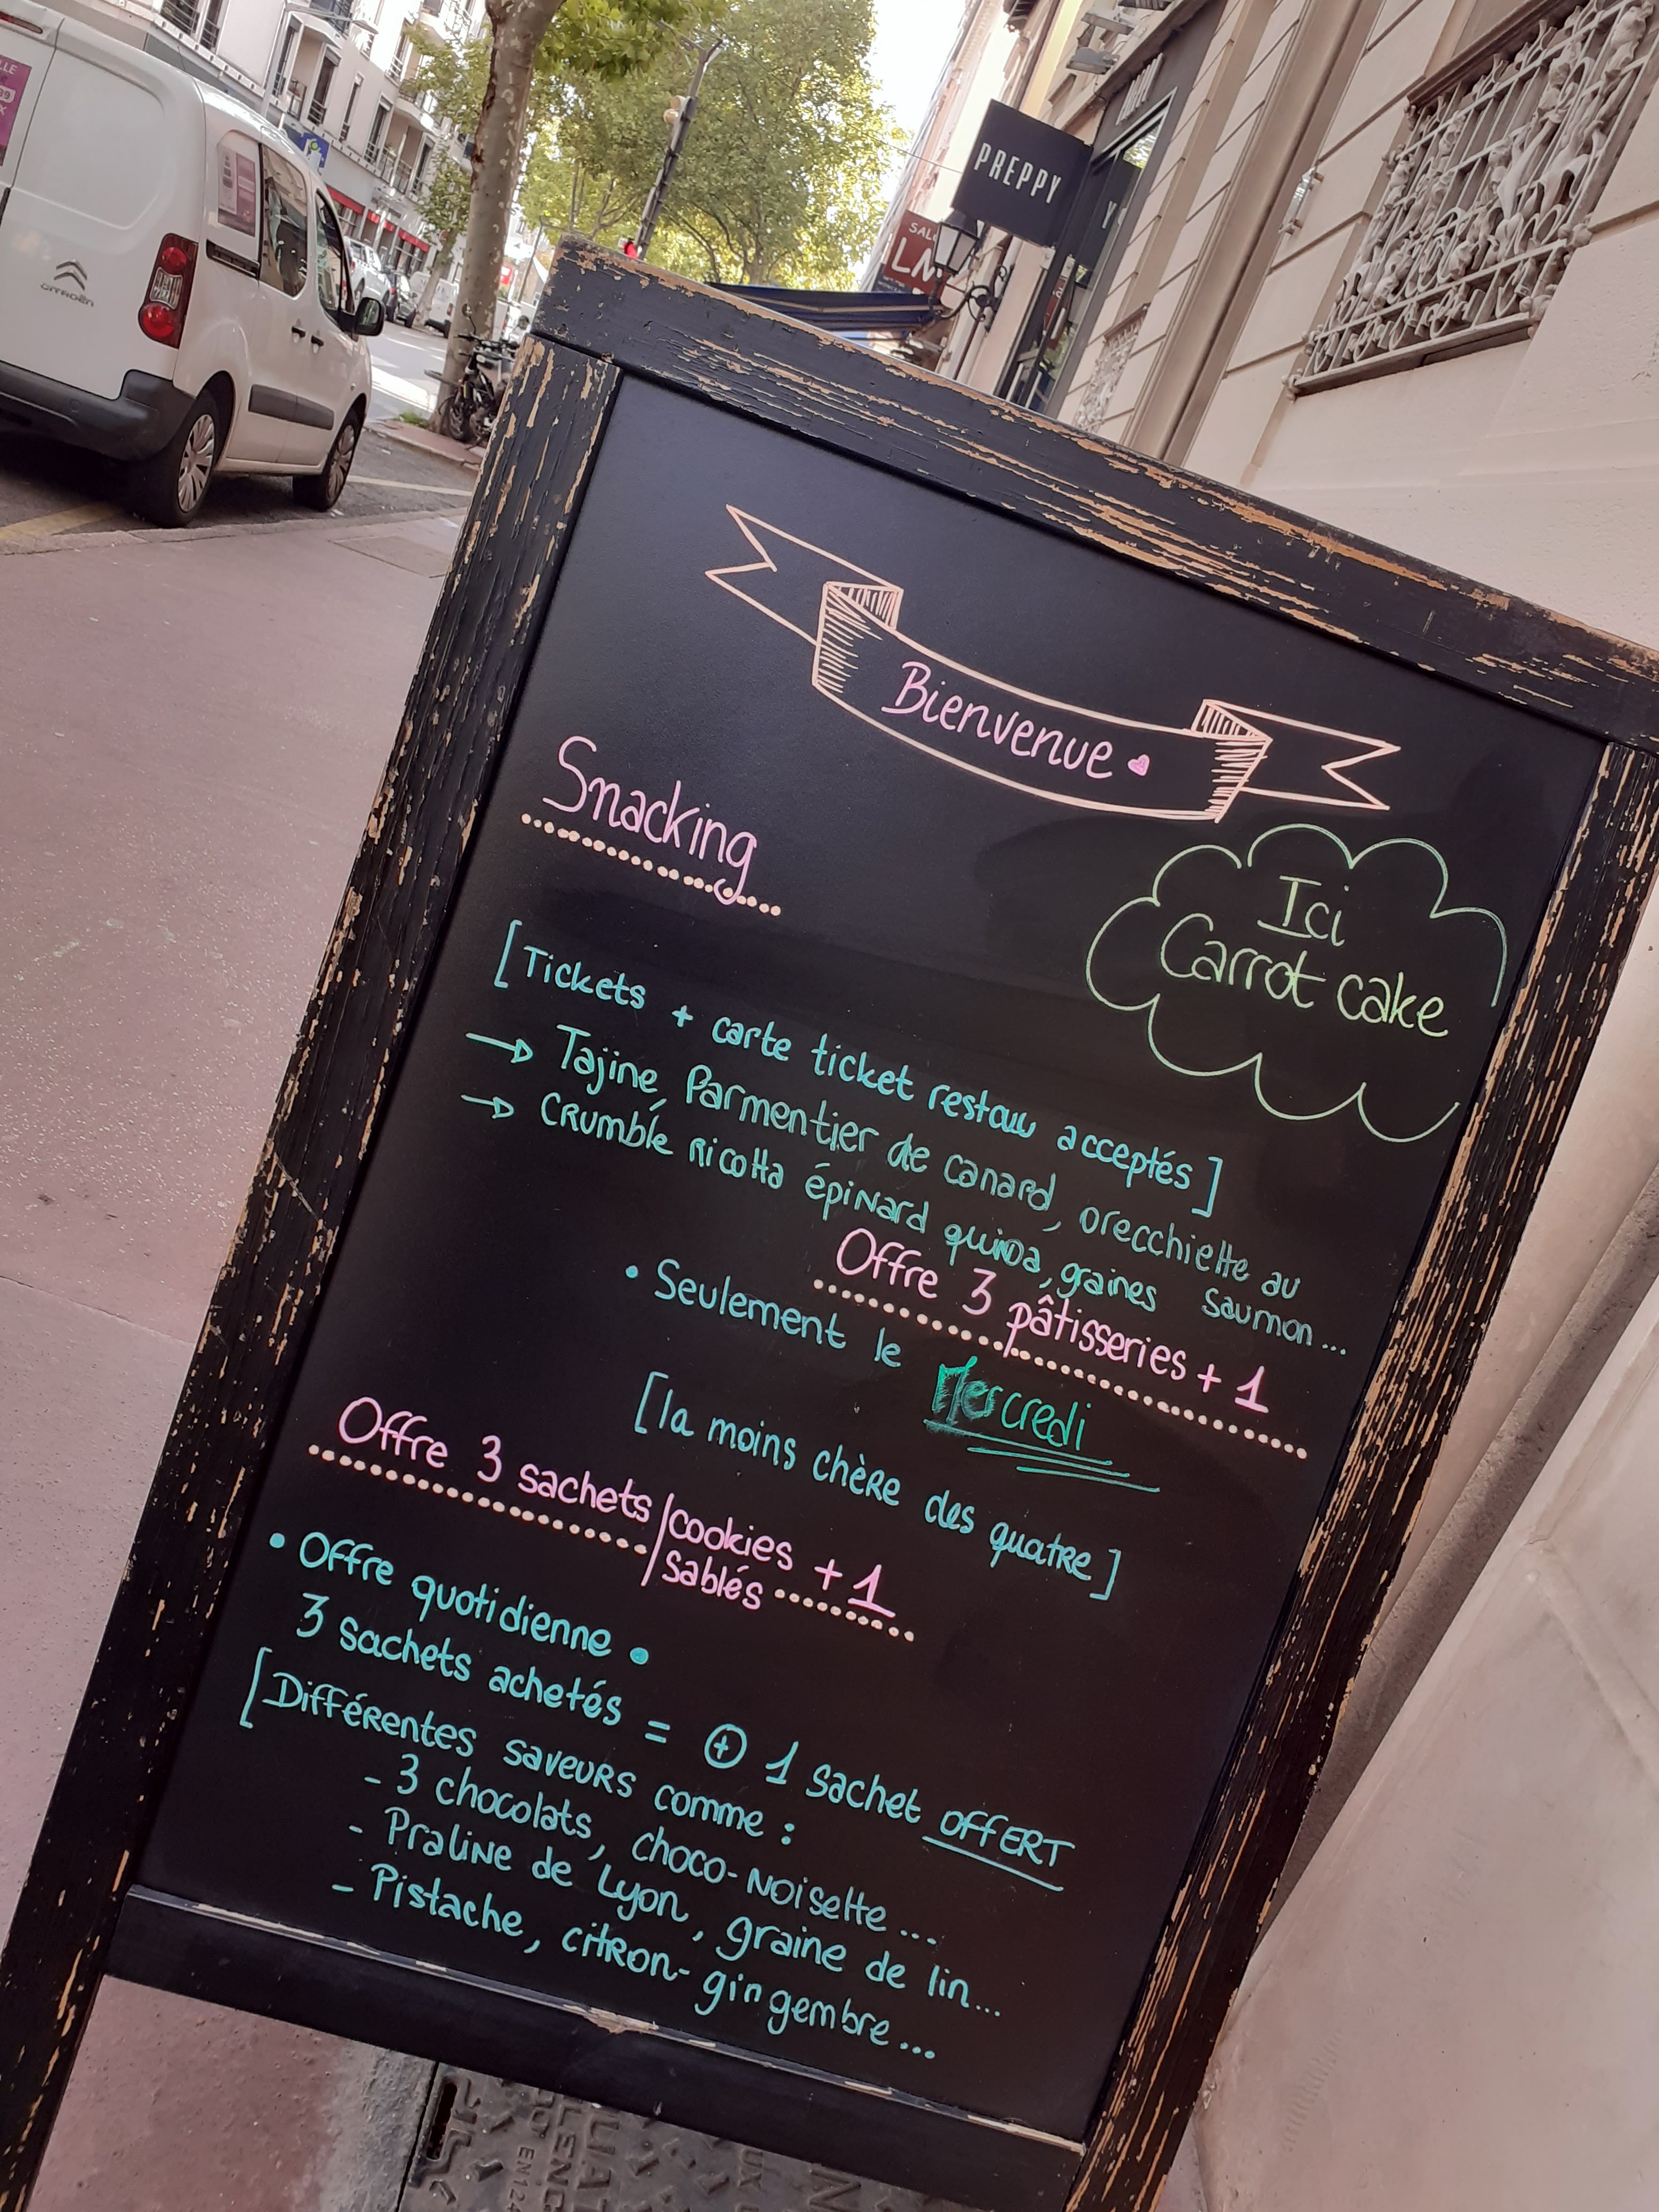 PREPPY
CITROËN
Bienvenue
Snacking
Ici
Carrot cake
[Tickets + carte ticket restau acceptés]
→ Tajine, Parmentier de canard, orecchiette au saumon...
→ Crumble ricotta épinard quinoa, graines
Offre 3 pâtisseries + 1
• Seulement le Mercredi
[la moins chère des quatre]
Offre 3 sachets/cookies + 1
sablés
• Offre quotidienne •
3 sachets achetés = + 1 sachet OFFERT
[Différentes saveurs comme :
- 3 chocolats, choco-noisette...
- Praline de Lyon, graine de lin...
- Pistache, citron-gingembre...